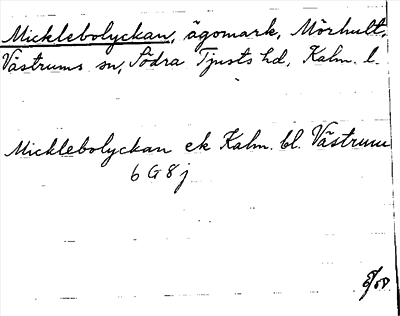 Micklebolyckan, ägomark, Mörhult,
Västrums sn, Södra Tjusts hd, Kalm. l.
Micklebolyckan ek Kalm. bl. Västrum
6 G 8 j